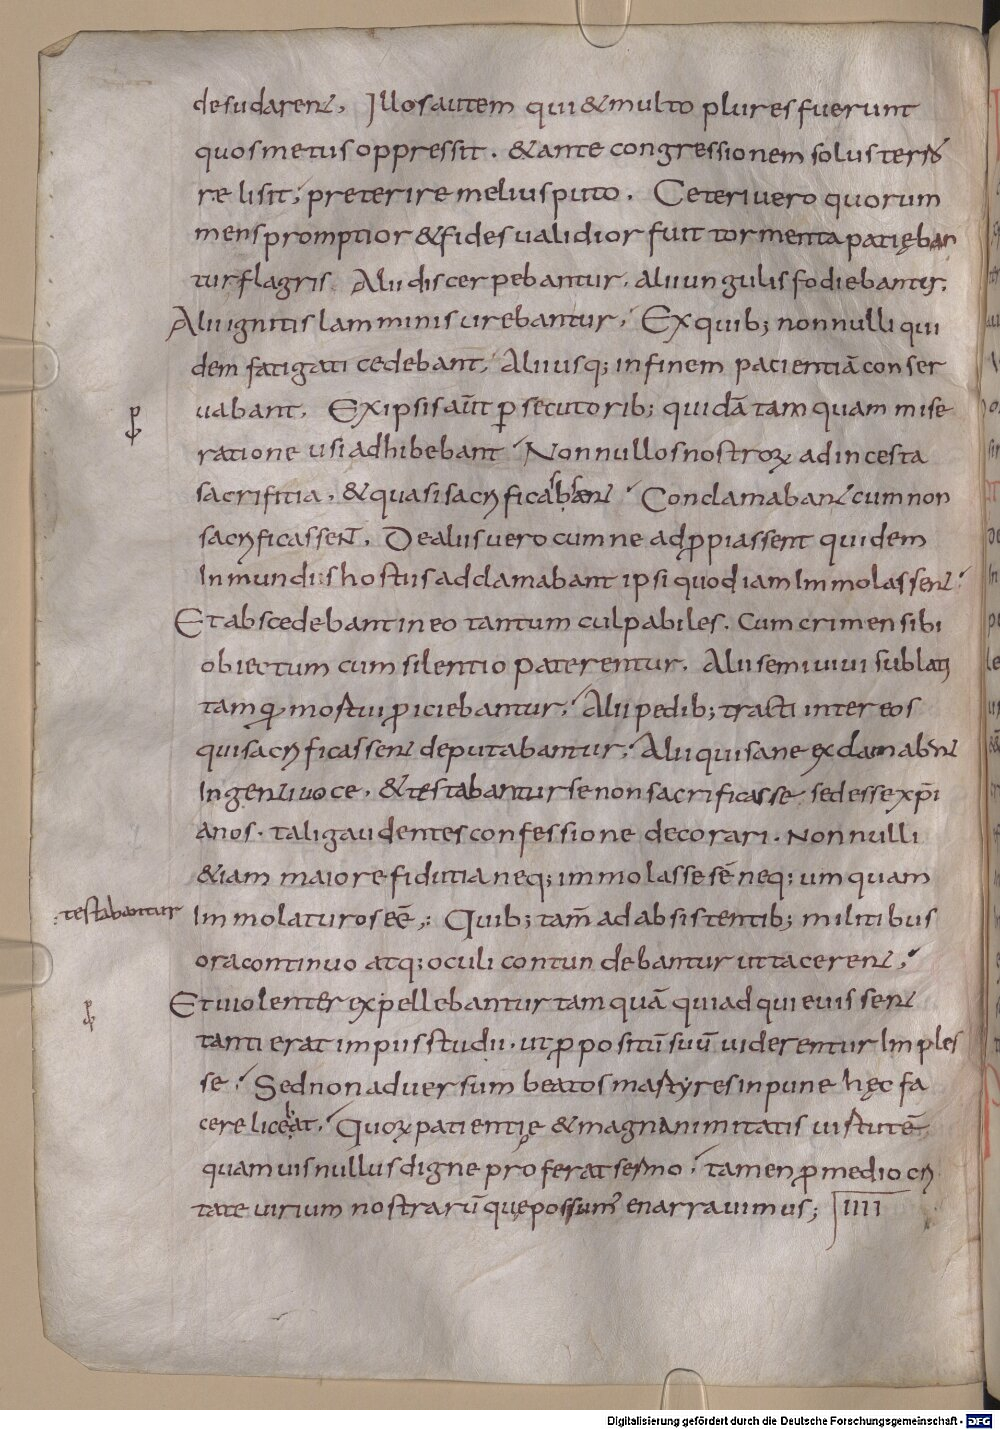 desudarent, Illos autem qui & multo plures fuerunt
quos metus oppressit. & ante congressionem solus terror
relisit; preterire melius puto. Ceteri vero quorum
mens promptior & fides validior fuit tormenta patieban
tur flagris. Alii discerpebantur. alii ungulis fodiebantur.
Alii ignitis lamminis urebantur. Ex quib; nonnulli qui
dem fatigati cedebant, Alii usq; in finem pacientiā conser
vabant. Ex ipsis aūt ꝑsecutorib; quidā tam quam mise
ratione usi adhibebant Nonnullos nostroꝝ ad incesta
sacrifitia, & quasi sacrificabant Conclamabant cum non
sacrificassent. De aliis vero cum ne adꝓpiassent quidem
Inmundis hostiis adclamabant ipsi quod iam Immolassent
Et abscedebant in eo tantum culpabiles. Cum crimen sibi
obiectum cum silentio paterentur. Alii semivivi sublati
tamqͥ mortui ꝓiciebantur, Alii pedib; tracti inter eos
qui sacrificassent deputabantur; Alii qui sane exclamabant
Ingenti voce, & testabantur se non sacrificasse sed esse xp̄i
anos. tali gaudentes confessione decorari. Nonnulli
&iam maiore fidutia neq; immolasse sē neq; umquam
testabantur
Immolaturos eē,: Quib; tam̄ ad absistentib; militibus
ora continuo atq; oculi contundebantur ut tacerent,
Et violenter expellebantur tam quā qui adquievissent
tanti erat impiis studii. ut ꝓpositū suū viderentur Imples
se. Sed non adversum beatos martyres inpune hęc fa
cere licebat, Quoꝝ patientię & magnanimitatis virtutē
quamvis nullus digne proferat sermo, tamen ꝓ mediocri
tate virium nostrarū quę possumus enarravimus; IIII